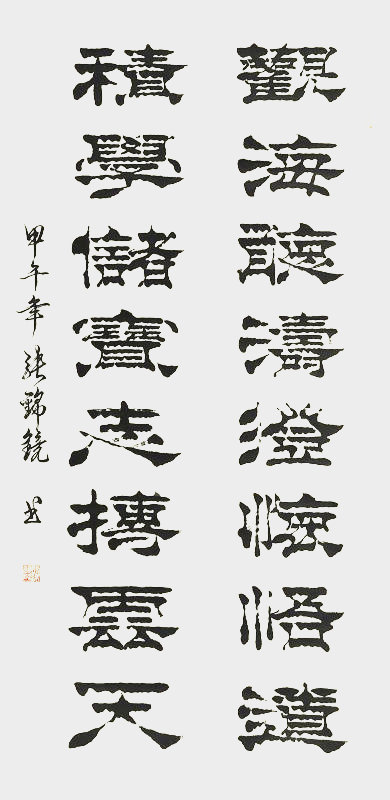 觀海聽濤澄懷悟道
積學儲寶志搏雲天
甲午年張錦鏡书